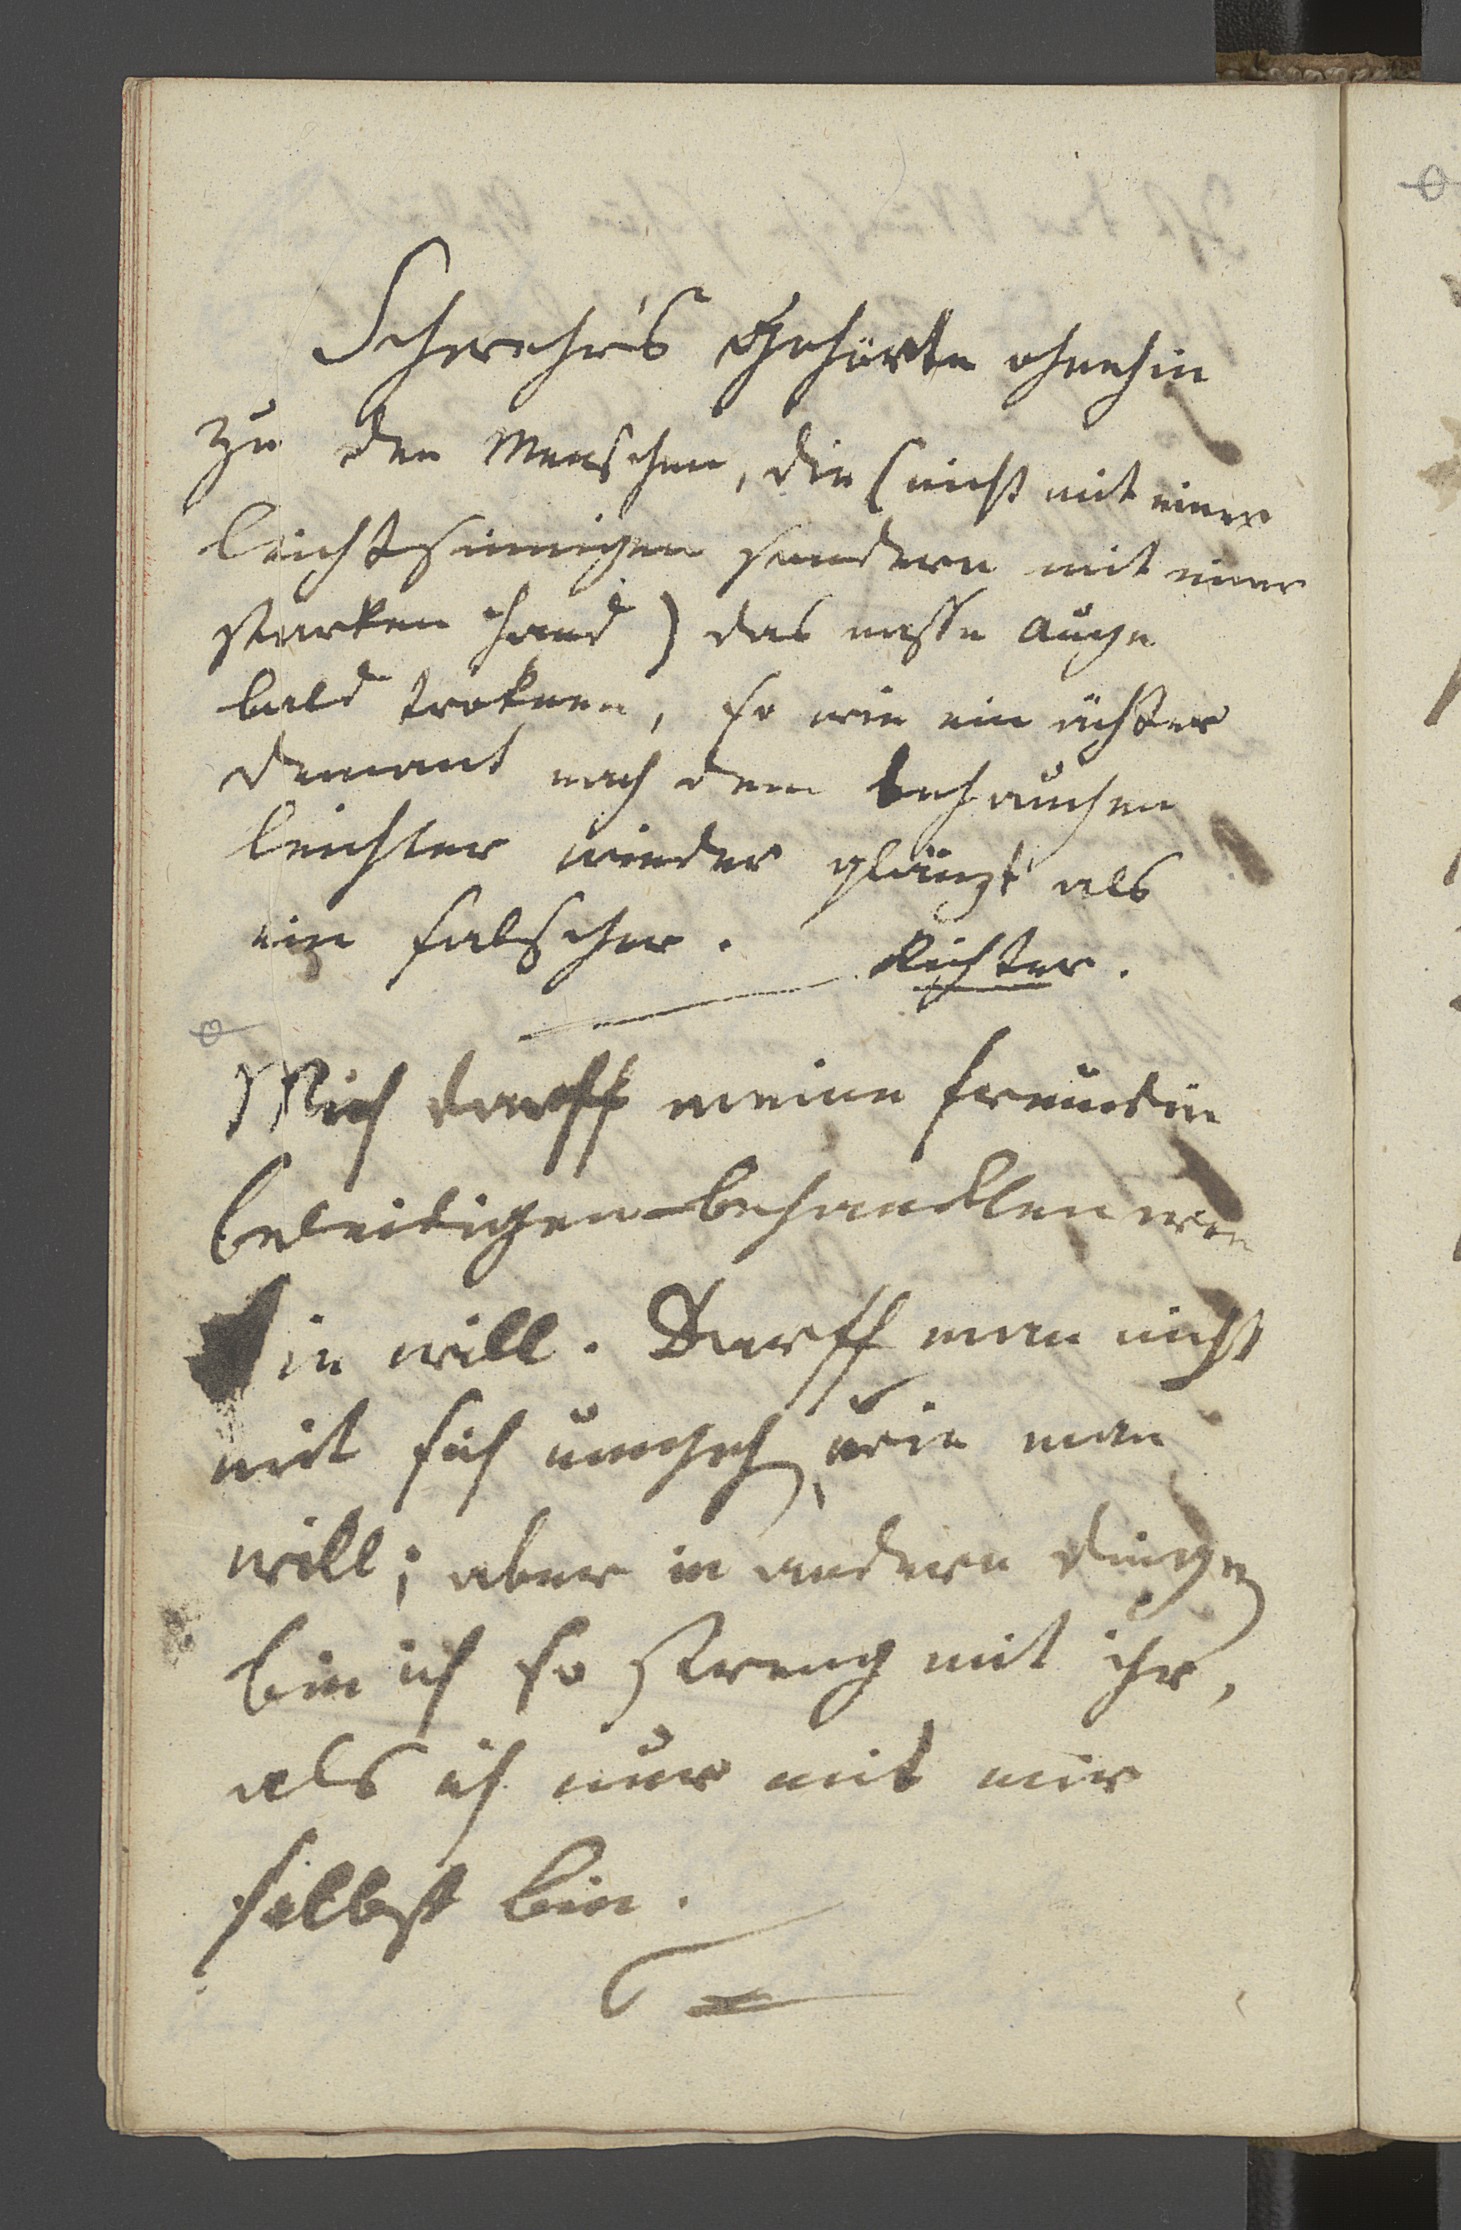 gehörte ohnehin
zu den Menschen, die (nicht mit einer
leichtsinnigen sondern mit einer
starken Hand) das nasse Auge
bald troknen, so wie ein ächter
Demant nach dem behauchen
leichter wieder glänzt als
ein falscher.
Richter.
Mich darff meine Freundin
beleidigen behandlen wie
sie will. Darff man nicht
mit sich umgeh, wie man
will; aber in andern Dingen
bin ich so streng mit ihr,
als ich nur mit mir
selbst bin.